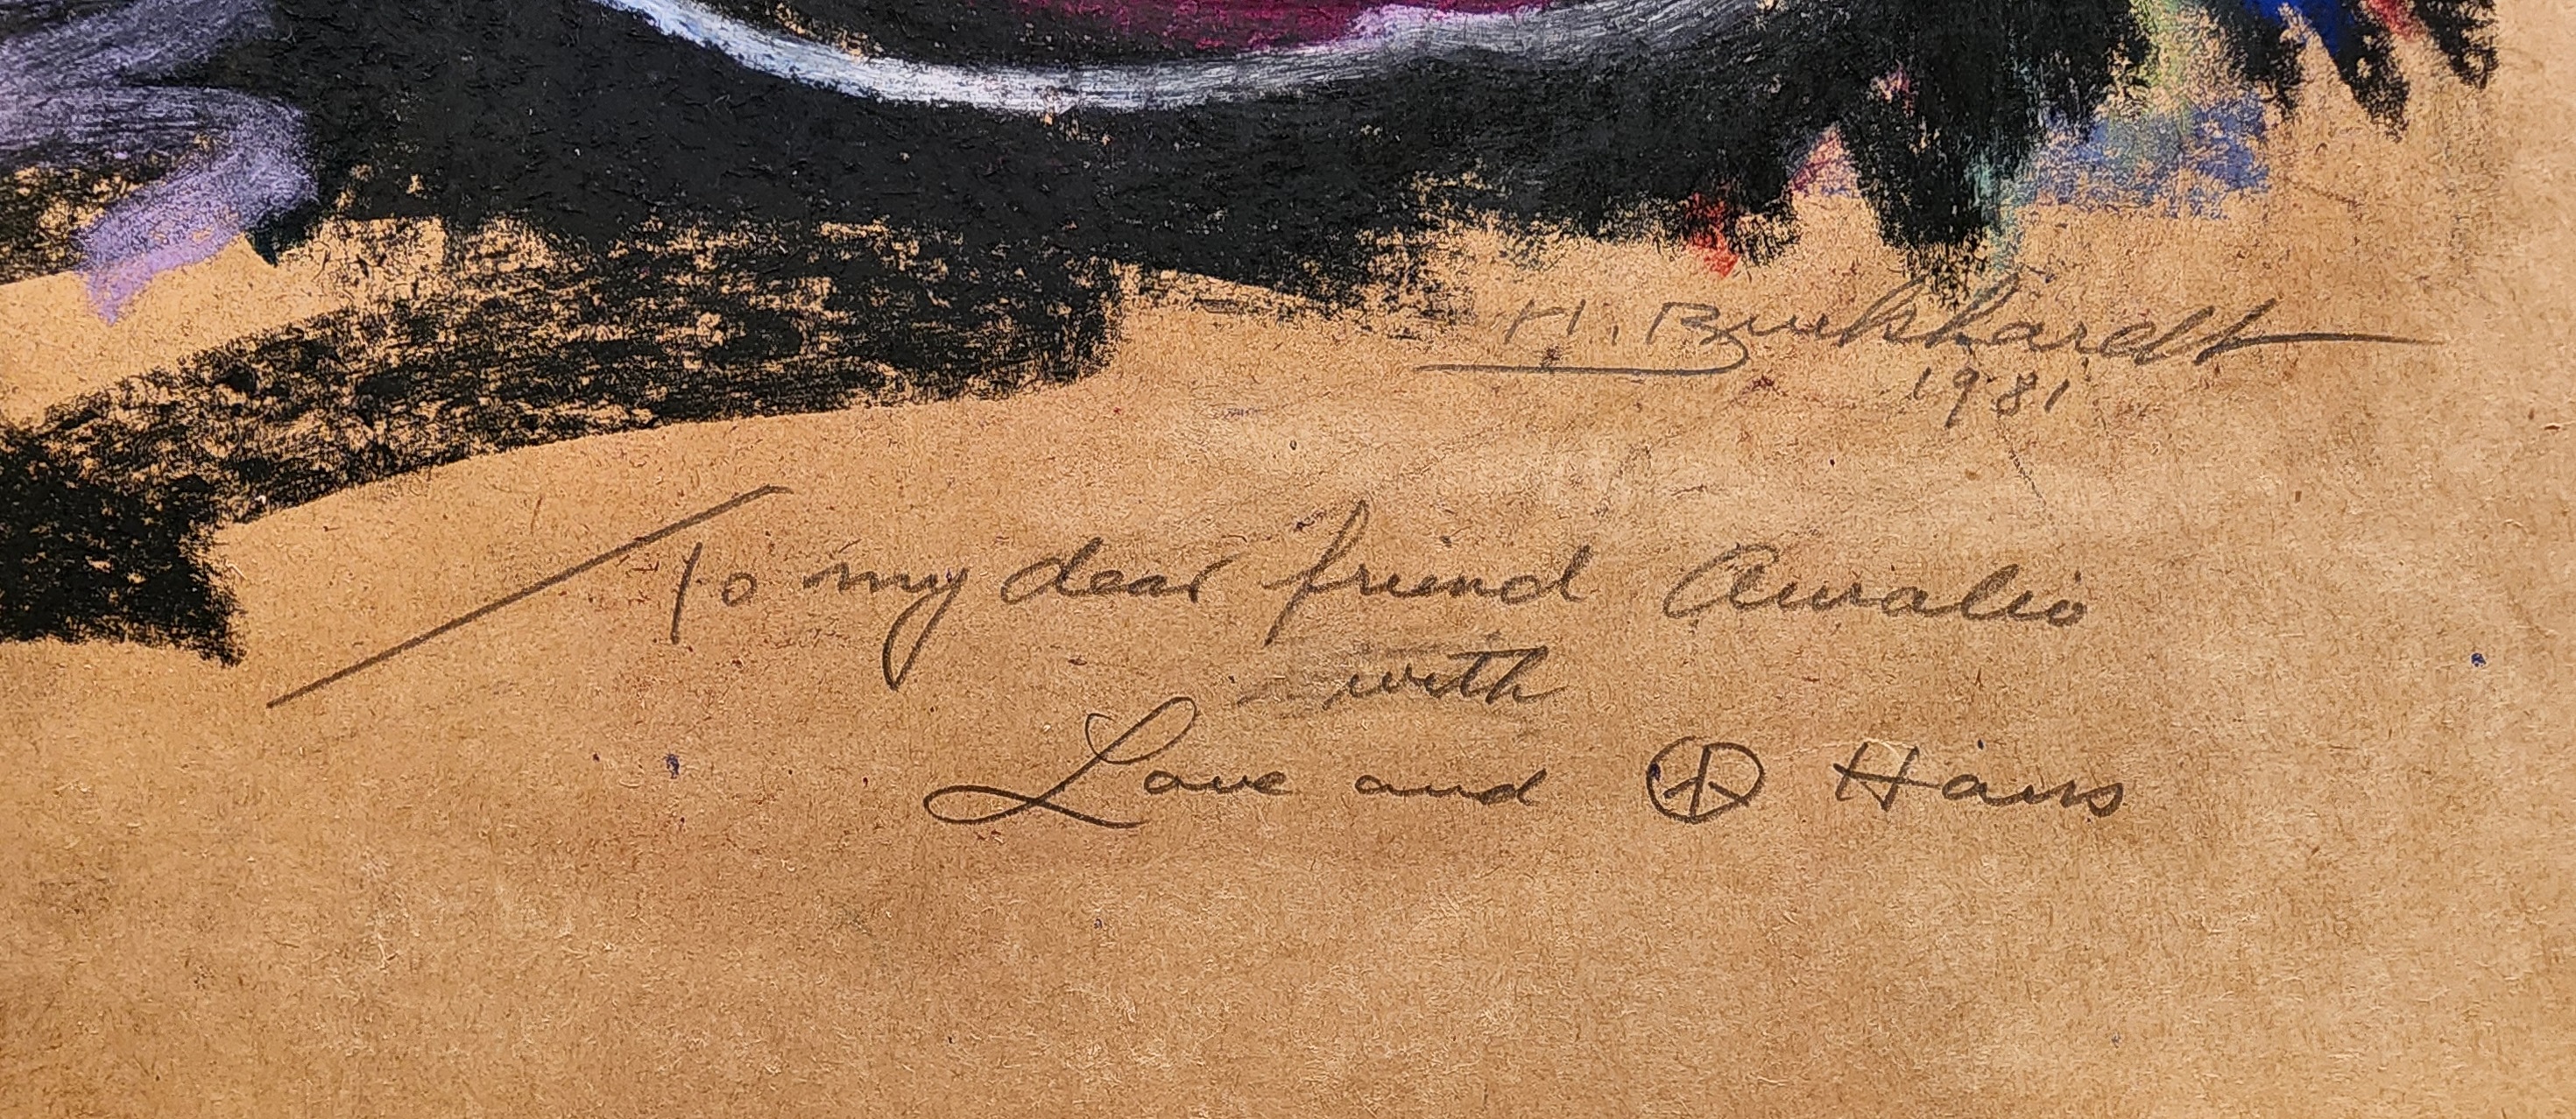 H. Burkhardt
1981
To my dear friend Auralio
with
Love and ☮ Hans